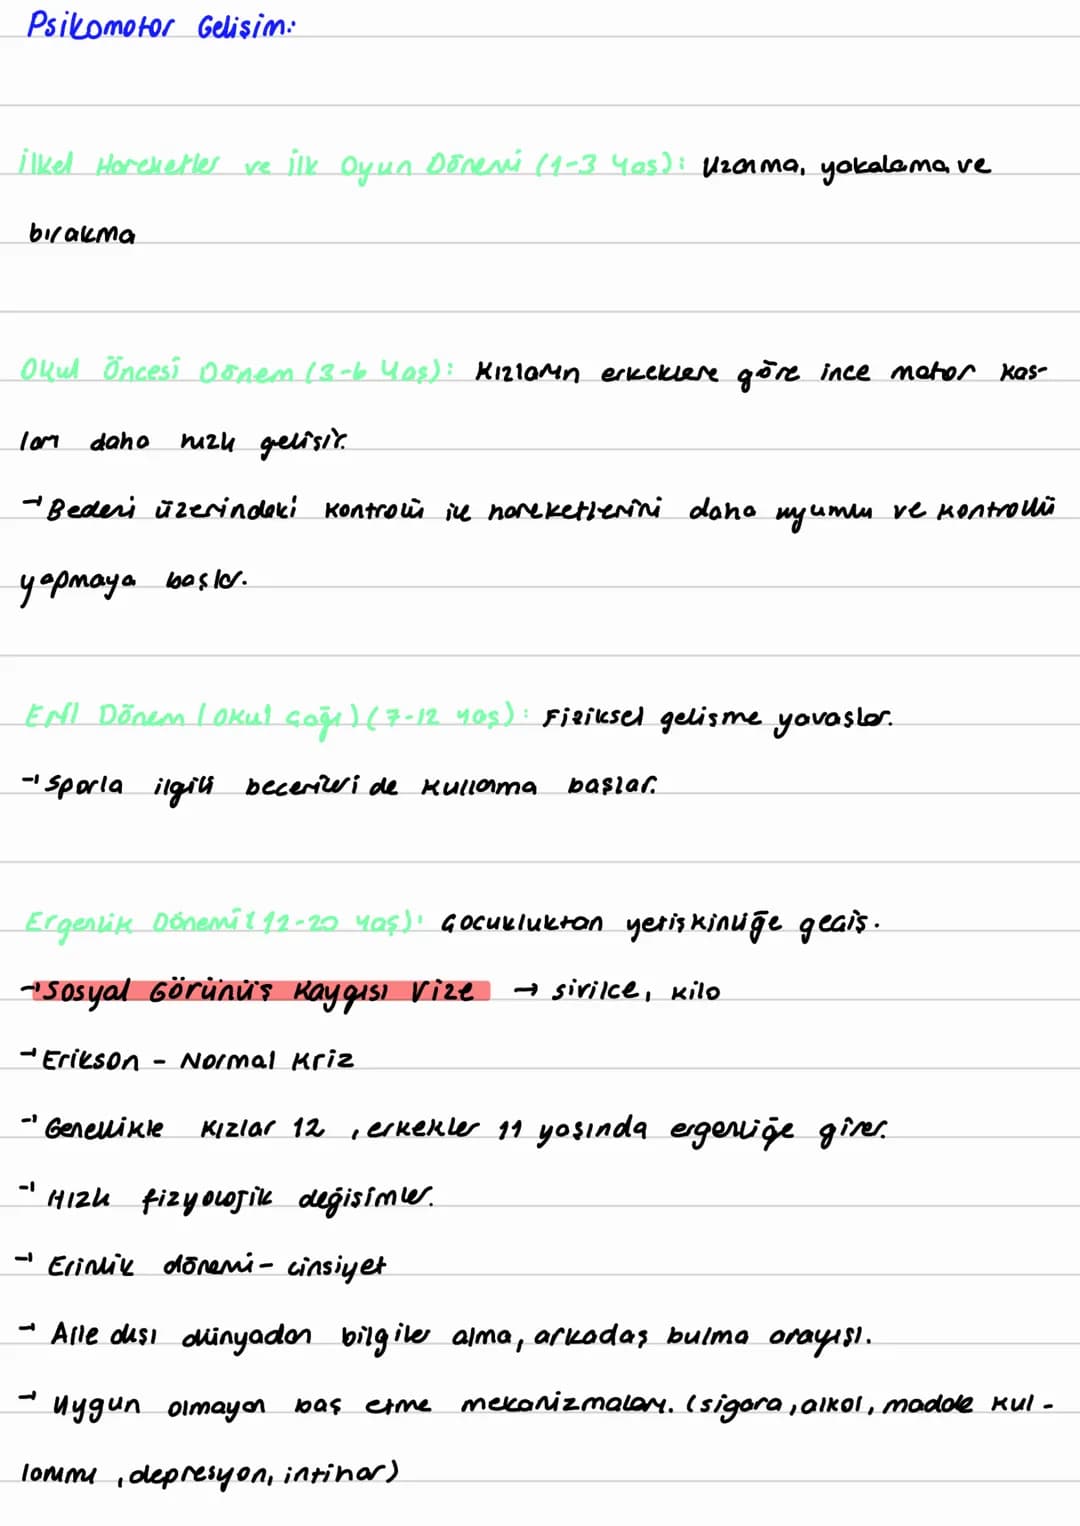 Psikomotor Gelişim:
İlkel Hareketler ve İlk Oyun Dönemi (1-3 Yaş): Uzanma, yakalama ve
bırakma
Okul Öncesi Dönem (3-6 Yaş): Kızların erkeklere göre ince motor kas-
ları daha hızlı gelişir.
→ Bedeni üzerindeki kontrolü ile hareketlerini daha uyumlu ve kontrollü
yapmaya başlar.
Eril Dönem (Okul Çağı) (7-12 yaş): Fiziksel gelişme yavaşlar.
→ Sporla ilgili becerileri de kullanma başlar.
Ergenlik Dönemi (12-20 yaş): Çocukluktan yetişkinliğe geçiş.
→ Sosyal Görünüş Kaygısı Vize → sivilce, kilo
→ Erikson - Normal Kriz
→ Genellikle kızlar 12, erkekler 11 yaşında ergenliğe girer.
→ Hızlı fizyolojik değişimler.
→ Erinlik dönemi - cinsiyet
→ Aile dışı dünyadan bilgiler alma, arkadaş bulma arayışı.
→ Uygun olmayan baş etme mekanizmaları. (sigara, alkol, madde kul-
lanımı, depresyon, intihar)